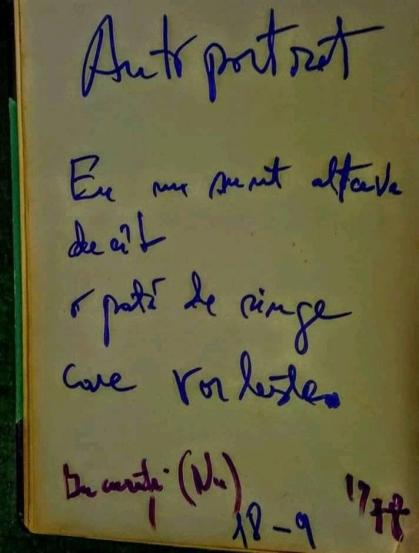 Autoportret
Eu nu sunt altceva
decât
o pată de sînge
care vorbește.
(Nu)
18-9